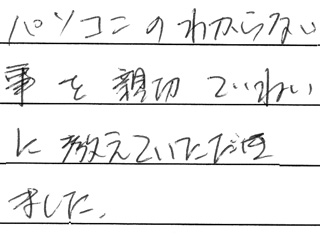 パソコンのわからない
事を親切ていねい
に教えていただき
ました。